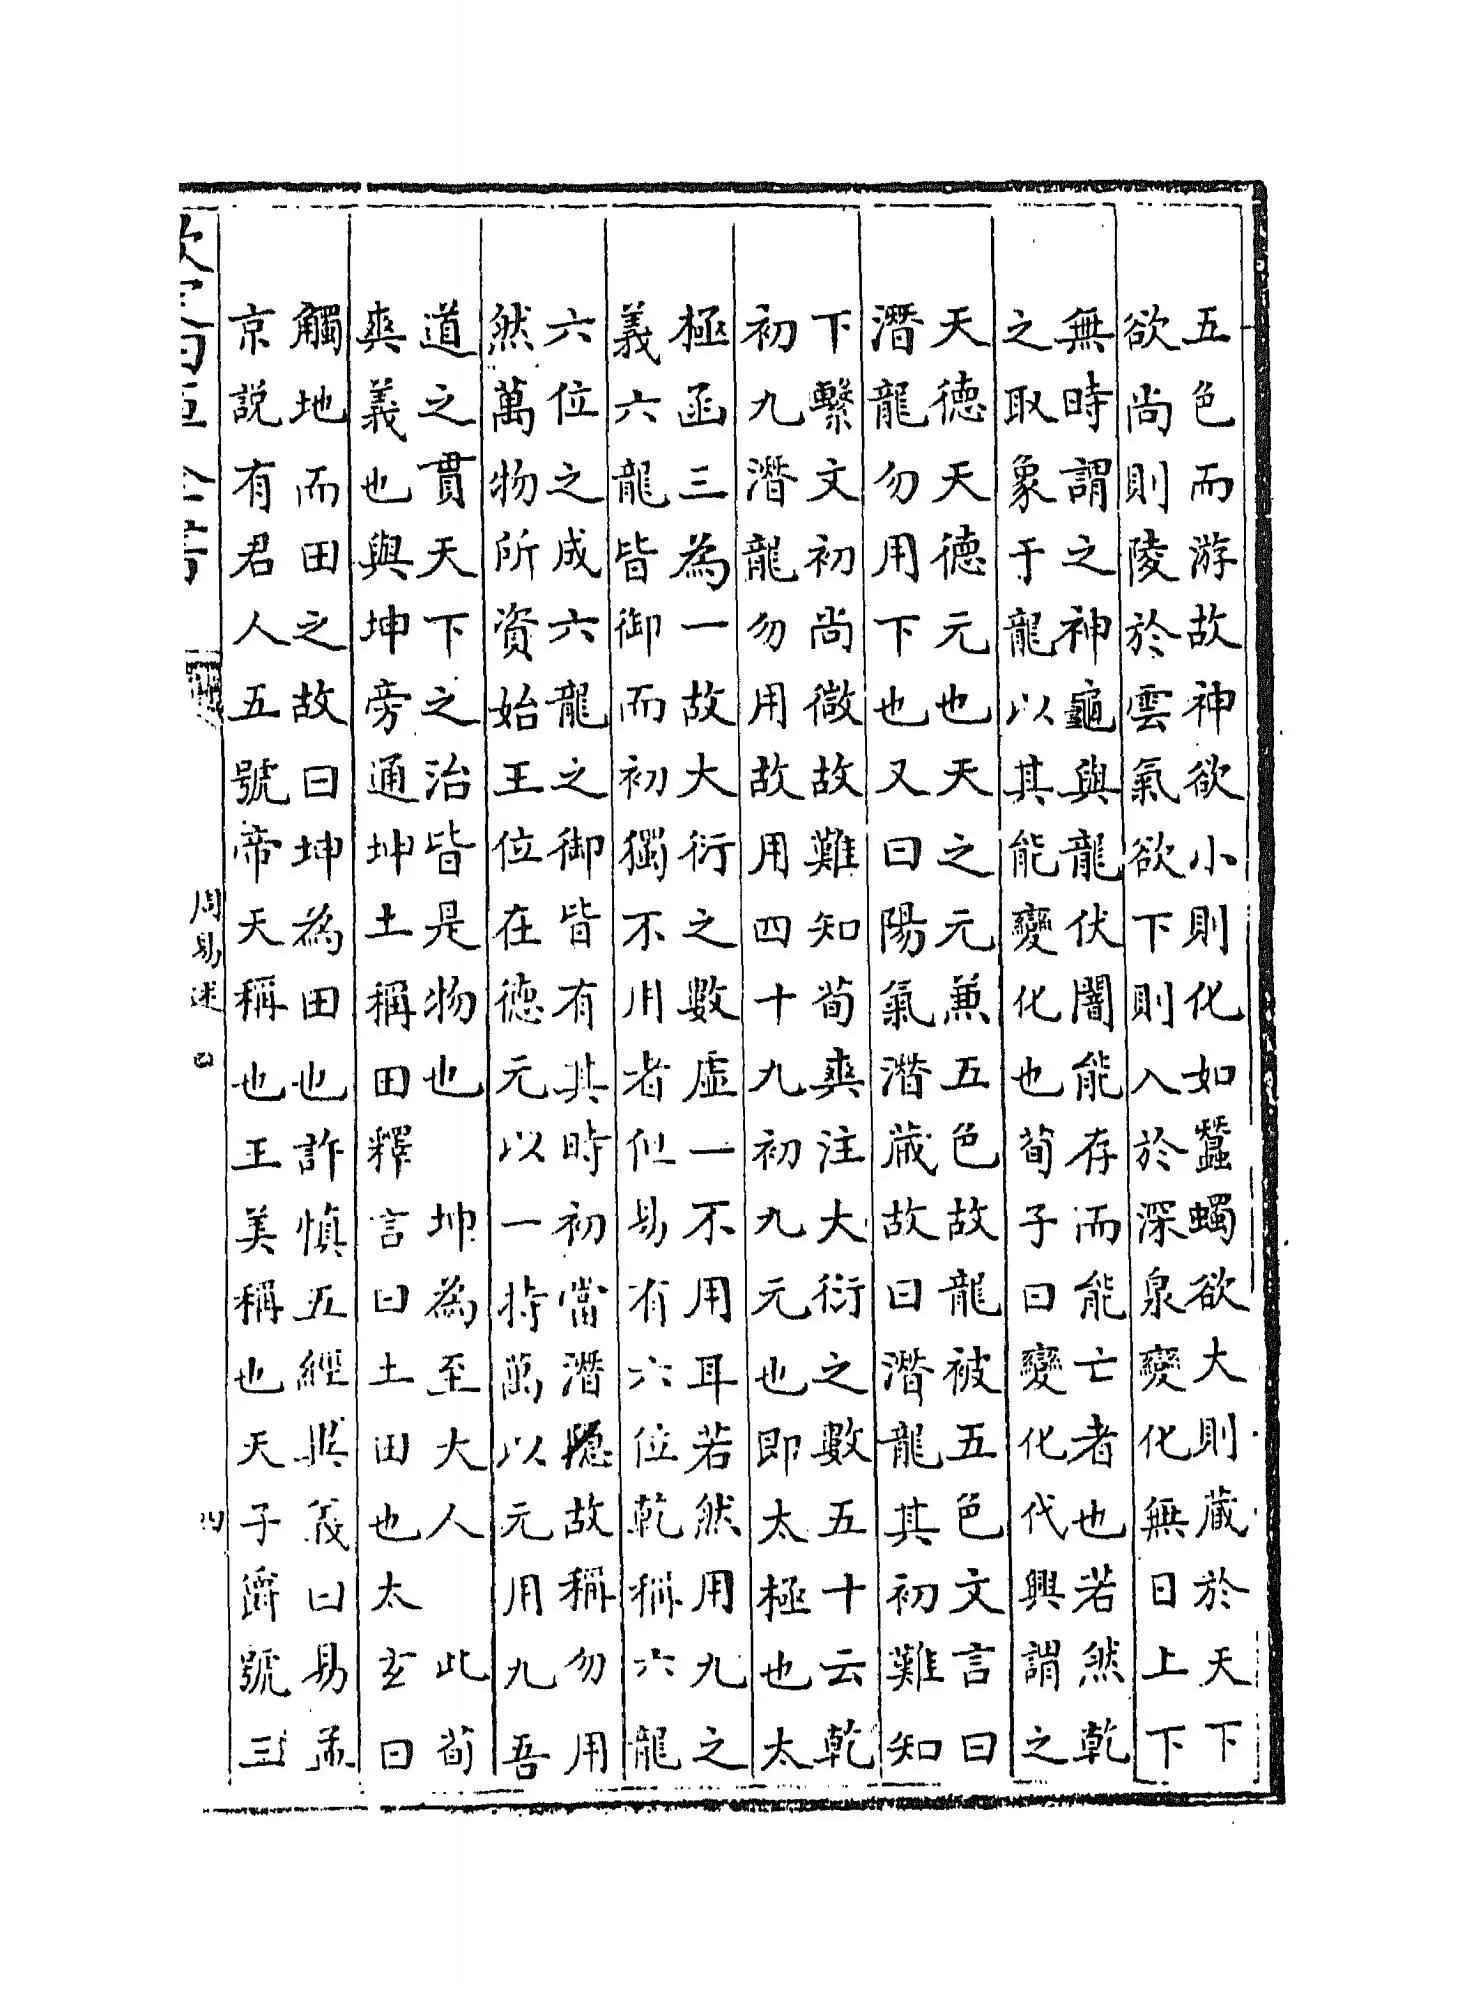 五色而游故神欲小則化如蠶蠋欲大則藏於天下
欲尚則陵於雲氣欲下則入於深泉變化無日上下
無時謂之神龜與龍伏闇能存而能亡者也若然乾
之取象于龍以其能變化也荀子曰變化代興謂之
天德天德元也天之元兼五色故龍被五色文言曰
潛龍勿用下也又曰陽氣潛藏故曰潛龍其初難知
下繫文初尚微故難知荀爽注大衍之數五十云乾
初九潛龍勿用故用四十九初九元也即太極也太
極函三為一故大衍之數虛一不用耳若然用九之
義六龍皆御而初獨不用者但易有六位乾稱六龍
六位之成六龍之御皆有其時初當潛隱故稱勿用
然萬物所資始王位在德元以一持萬以元用九吾
道之貫天下之治皆是物也　坤為至大人　此荀
爽義也與坤旁通坤土稱田釋言曰土田也太玄曰
觸地而田之故曰坤為田也許慎五經異義曰易孟
京説有君人五號帝天稱也王美稱也天子爵號三
周易述
四